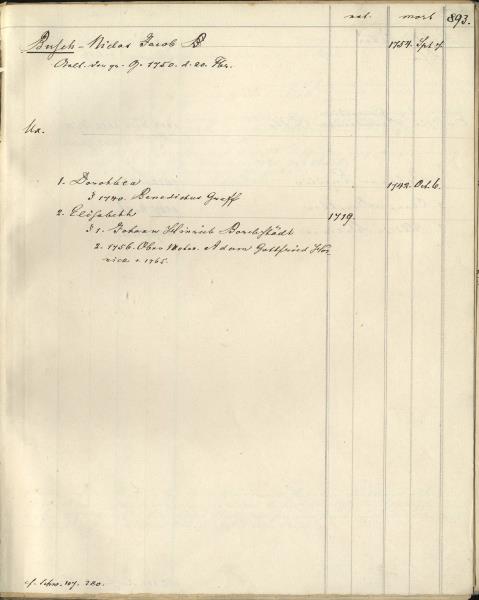 nat. mort 893.
Busch - Niclas Jacob B 1754. Spt 7.
1750. d. 20.
Ux.
1. Dorothea 1742. Oct. 6.
1740. Benedictus Greff
2. Elisabeth 1719.
1. Johann Hinrich Borchstädt
2. 1756. Adam Gottfried Hor-
nick + 1765.
cf. 107. 280.